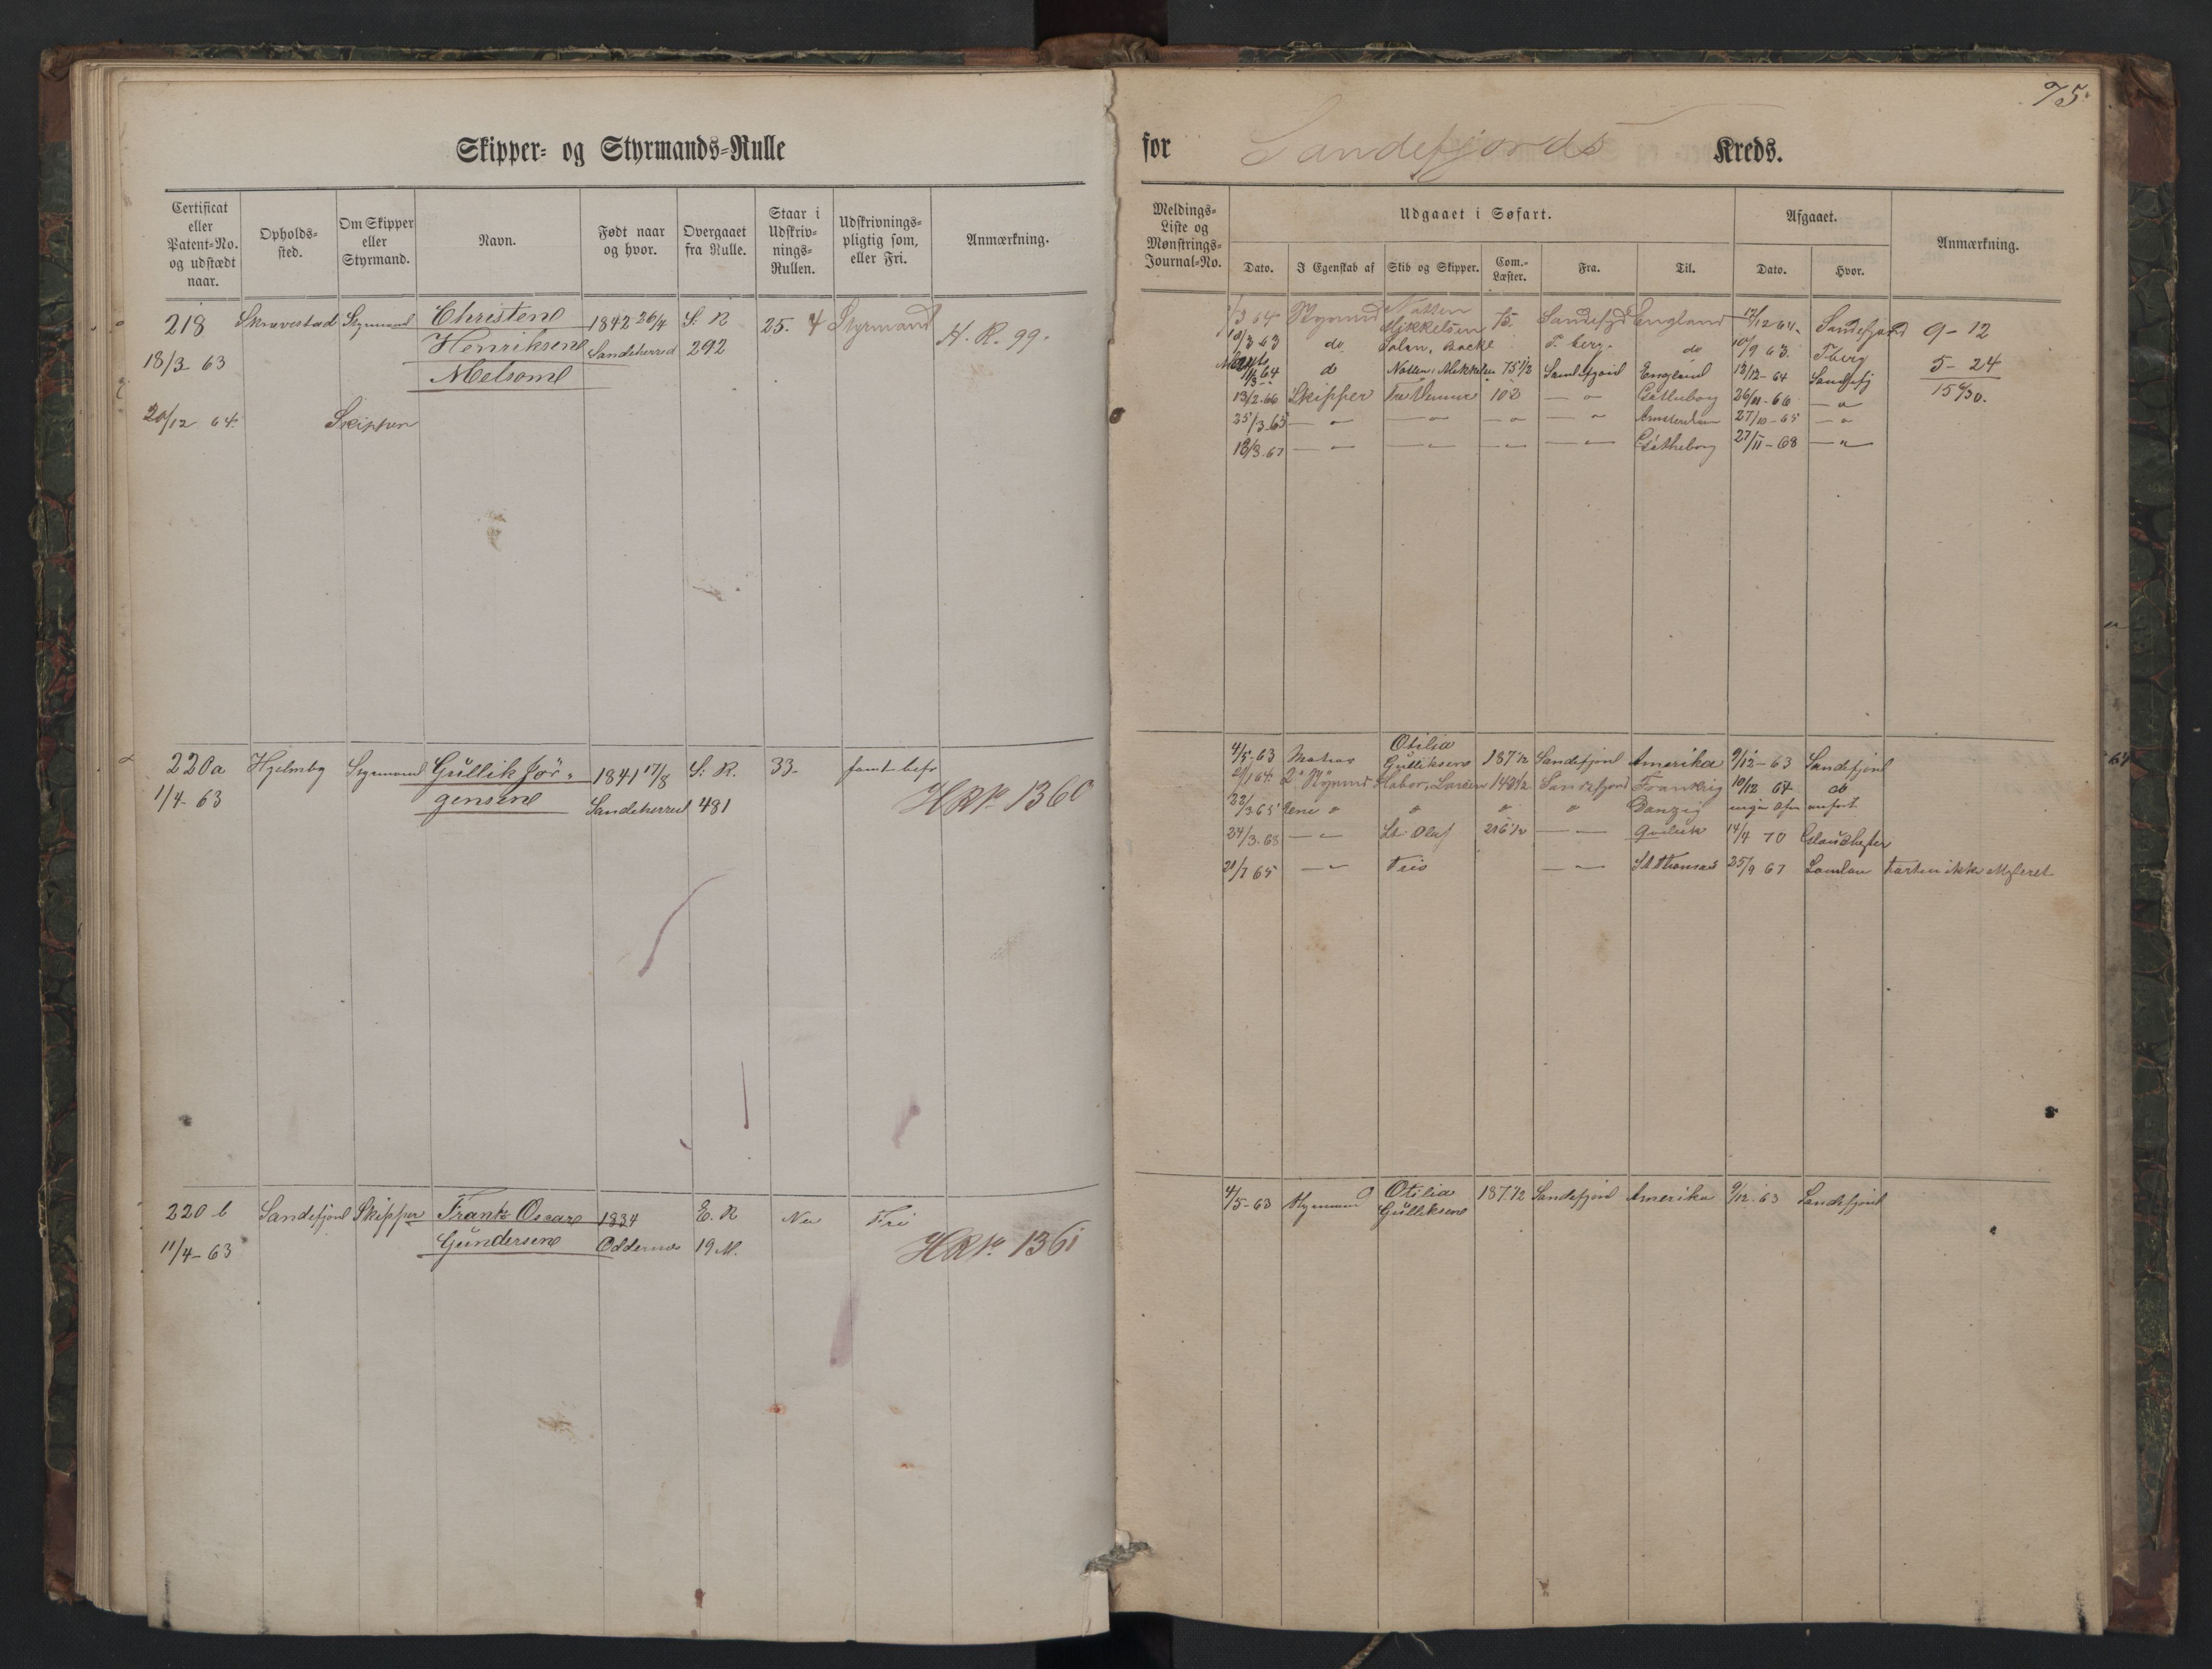 75.
Skipper- og Styrmands-Rulle
for Sandefjords Kreds.
Certificat eller Patent-No. og udstædt naar.
Opholds-sted.
Om Skipper eller Styrmand.
Navn.
Født naar og hvor.
Overgaaet fra Rulle.
Staar i Udskriv-nings-Rullen.
Udskrivnings-pligtig som, eller Fri.
Anmærkning.
Meldings-Liste og Mønstrings-Journal-No.
Udgaaet i Søfart.
Dato.
I Egenskab af
Skib og Skipper.
Com.-Læster.
Fra.
Til.
Afgaaet.
Dato.
Hvor.
Anmærkning.
218 Skravestad Styrmand Christen 1842 26/4 S. R 25. 4 Styrmand H. R. 99.
18/3 63 Henriksen Sandeherred 292
Melsom
20/12 64. Skipper
3 64 Styrmd Natten 75. Sandefjd England 17/12 64. Sandefjord 9-12
Mikkelsen
18/3 63 do Solon, Backe T.berg. do 10/9 63. T-berg 5-24
11/3 64 d Natten, Mikkelsen 75 1/2 Sandefjord England 13/12-64 Sandefj 15 6/30.
13/2.66 Skipper 108 — " Götheborg 26/11-66 — "
25/3.65 — " — " — " — " Amsterdam 27/10-65 — "
13/3.67 — " — " — " — " Götheborg 27/11-68 — "
220a Hjelmby Styrmand Gullik Jør- 1841 17/8 S. R. 33-
1/4-63 gensen Sandeherred 481 HR No 1360
4/5-63 Matros Otilia 187 1/2 Sandefjord Amerika 9/12-63 Sandefjord
Gulliksen
64. 2. Stýrmd Habor, Larsen 143 1/2 Sandefjord Frankrig 10/12 64. do
22/3 65 " " " " Danzig
24/3.68 — " St. Olaf 216 1/2 — Qvebek 14/4 70
21/7 65 — " Trio — " St Thomas 25/9 67 London
220 b Sandefjord Skipper Frantz Oscar 1834 E. R Nei Fri
11/4-63 Gundersen Oddernes 19 M. HR No 1361
4/5-63 Styrmand Otilia 187 1/2 Sandefjord Amerika 9/12.63 Sandefjord
Gulliksen